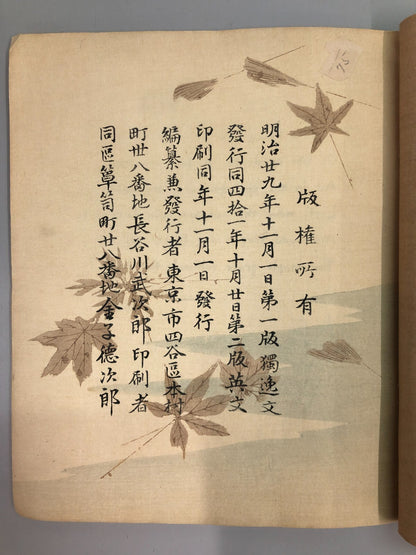 版權所有
明治廿九年十一月一日第一版獨逸文
發行同四拾一年十月廿日第二版英文
印刷同年十一月一日發行
編纂兼發行者東京市四谷區本村
町卅八番地長谷川武次郎印刷者
同區簞笥町廿八番地金子德次郎